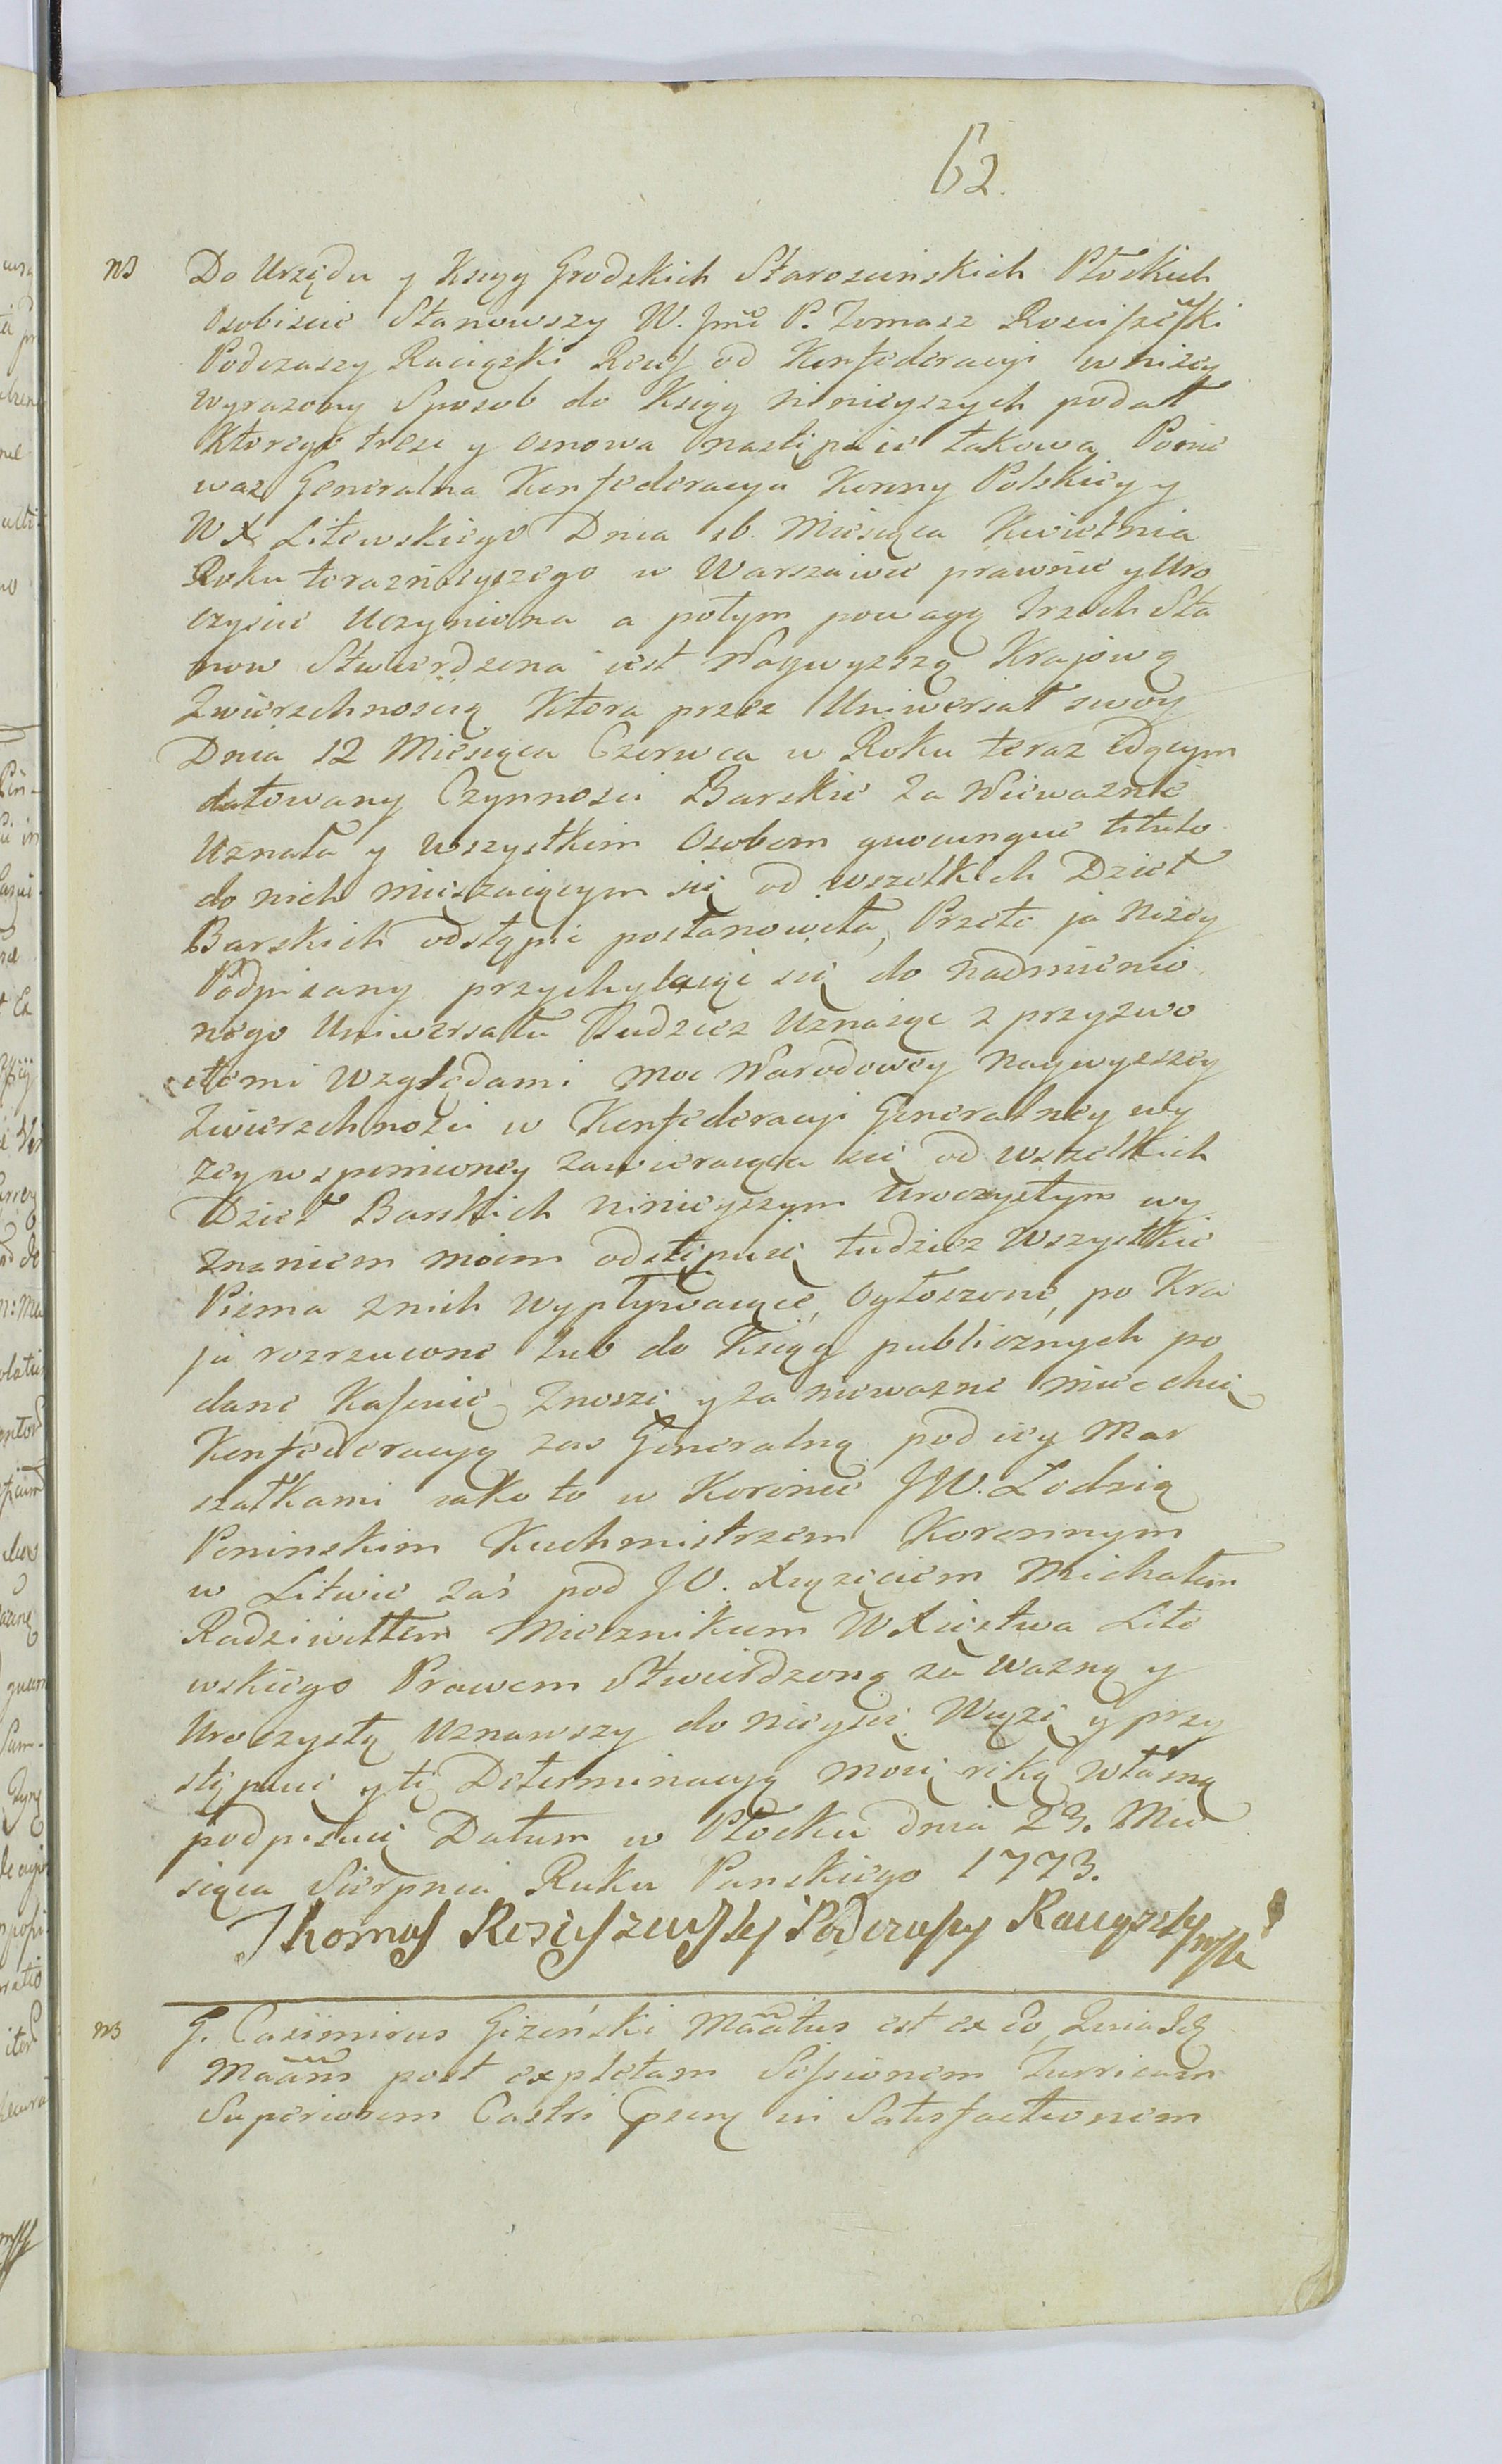 62.
NB Do Urzędu y Xsięg Grodzkich Staroscinskich Płockich
Osobiscie Stanowszy W. Jmć P. Tomasz Rosciszewski
Podczaszy Raciązki Recess od Konfederacyi w niżey
wyrazony Sposob do Ksiąg ninieyszych podał
Ktorego tresc y osnowa nastąpuie takowa Ponie
waz Generalna Konfederacya Korony Polskiey y
W X Litewskiego Dnia 16 Miesiąca Kwietnia
Roku teraznieyszego w Warszawie prawnie y Uro
czyscie Uczyniona a potym powagą Trzech Sta
now Stwierdzona iest Naywyzszą Kraiową
Zwierzchnoscią Ktora przez Uniwersał swoy
Dnia 12 Miesiąca Czerwca w Roku teraz idącym
datowany Czynnosci Barskie za Niewaznie
Uznała y wszystkim Osobom quocunque titulo
do nich mieszaiącym się od wszelkich Dzieł
Barskich odstąpic postanowiła, Przeto ja Nizey
Podpisany przychylaiąc się do nadmienio
nego Uniwersału Tudziez Uznaiąc z przyzwo
itemi Względami Moc Narodowey naywyzszey
Zwierzchnosci w Konfederacyi Generalney wy
zey wspomnioney zawieraiąca się od wszelkich
Dzieł Barskich ninieyszym Uroczystym wy
znaniem moim odstępuię tudziez Wszystkie
Pisma z nich wypływaiące, Ogłoszone, po Kra
ju rozrzucone lub do Ksiąg publicznych po
dane Kassuię Znoszę y za niewazne mieć chcę
Konfederacyą zas Generalną pod iey Mar
szałkami iako to w Koronie JW. Łodzią
Poninskim Kuchmistrzem Koronnym
w Litwie zaś pod JO. Xiązęciem Michałem
Radziwiłłem Miecznikiem W Xięstwa Lite
wskiego Prawem Stwierdzoną za wazną y
Uroczystą Uznawszy do nieyze się Wiązę y przy
stępuię y tę Determinacyą moię ręką własną
podpisuię Datum w Płocku Dnia 23. Mie
siąca Sierpnia Roku Panskiego 1773.
Thomas Rosciszewsky Podczaszy Raciązky mp
NB G. Casimirus Gizinski Mãatus est ex
Mãam post expletam Sessionem Turrium
Superiorem Castri in Satisfactionem